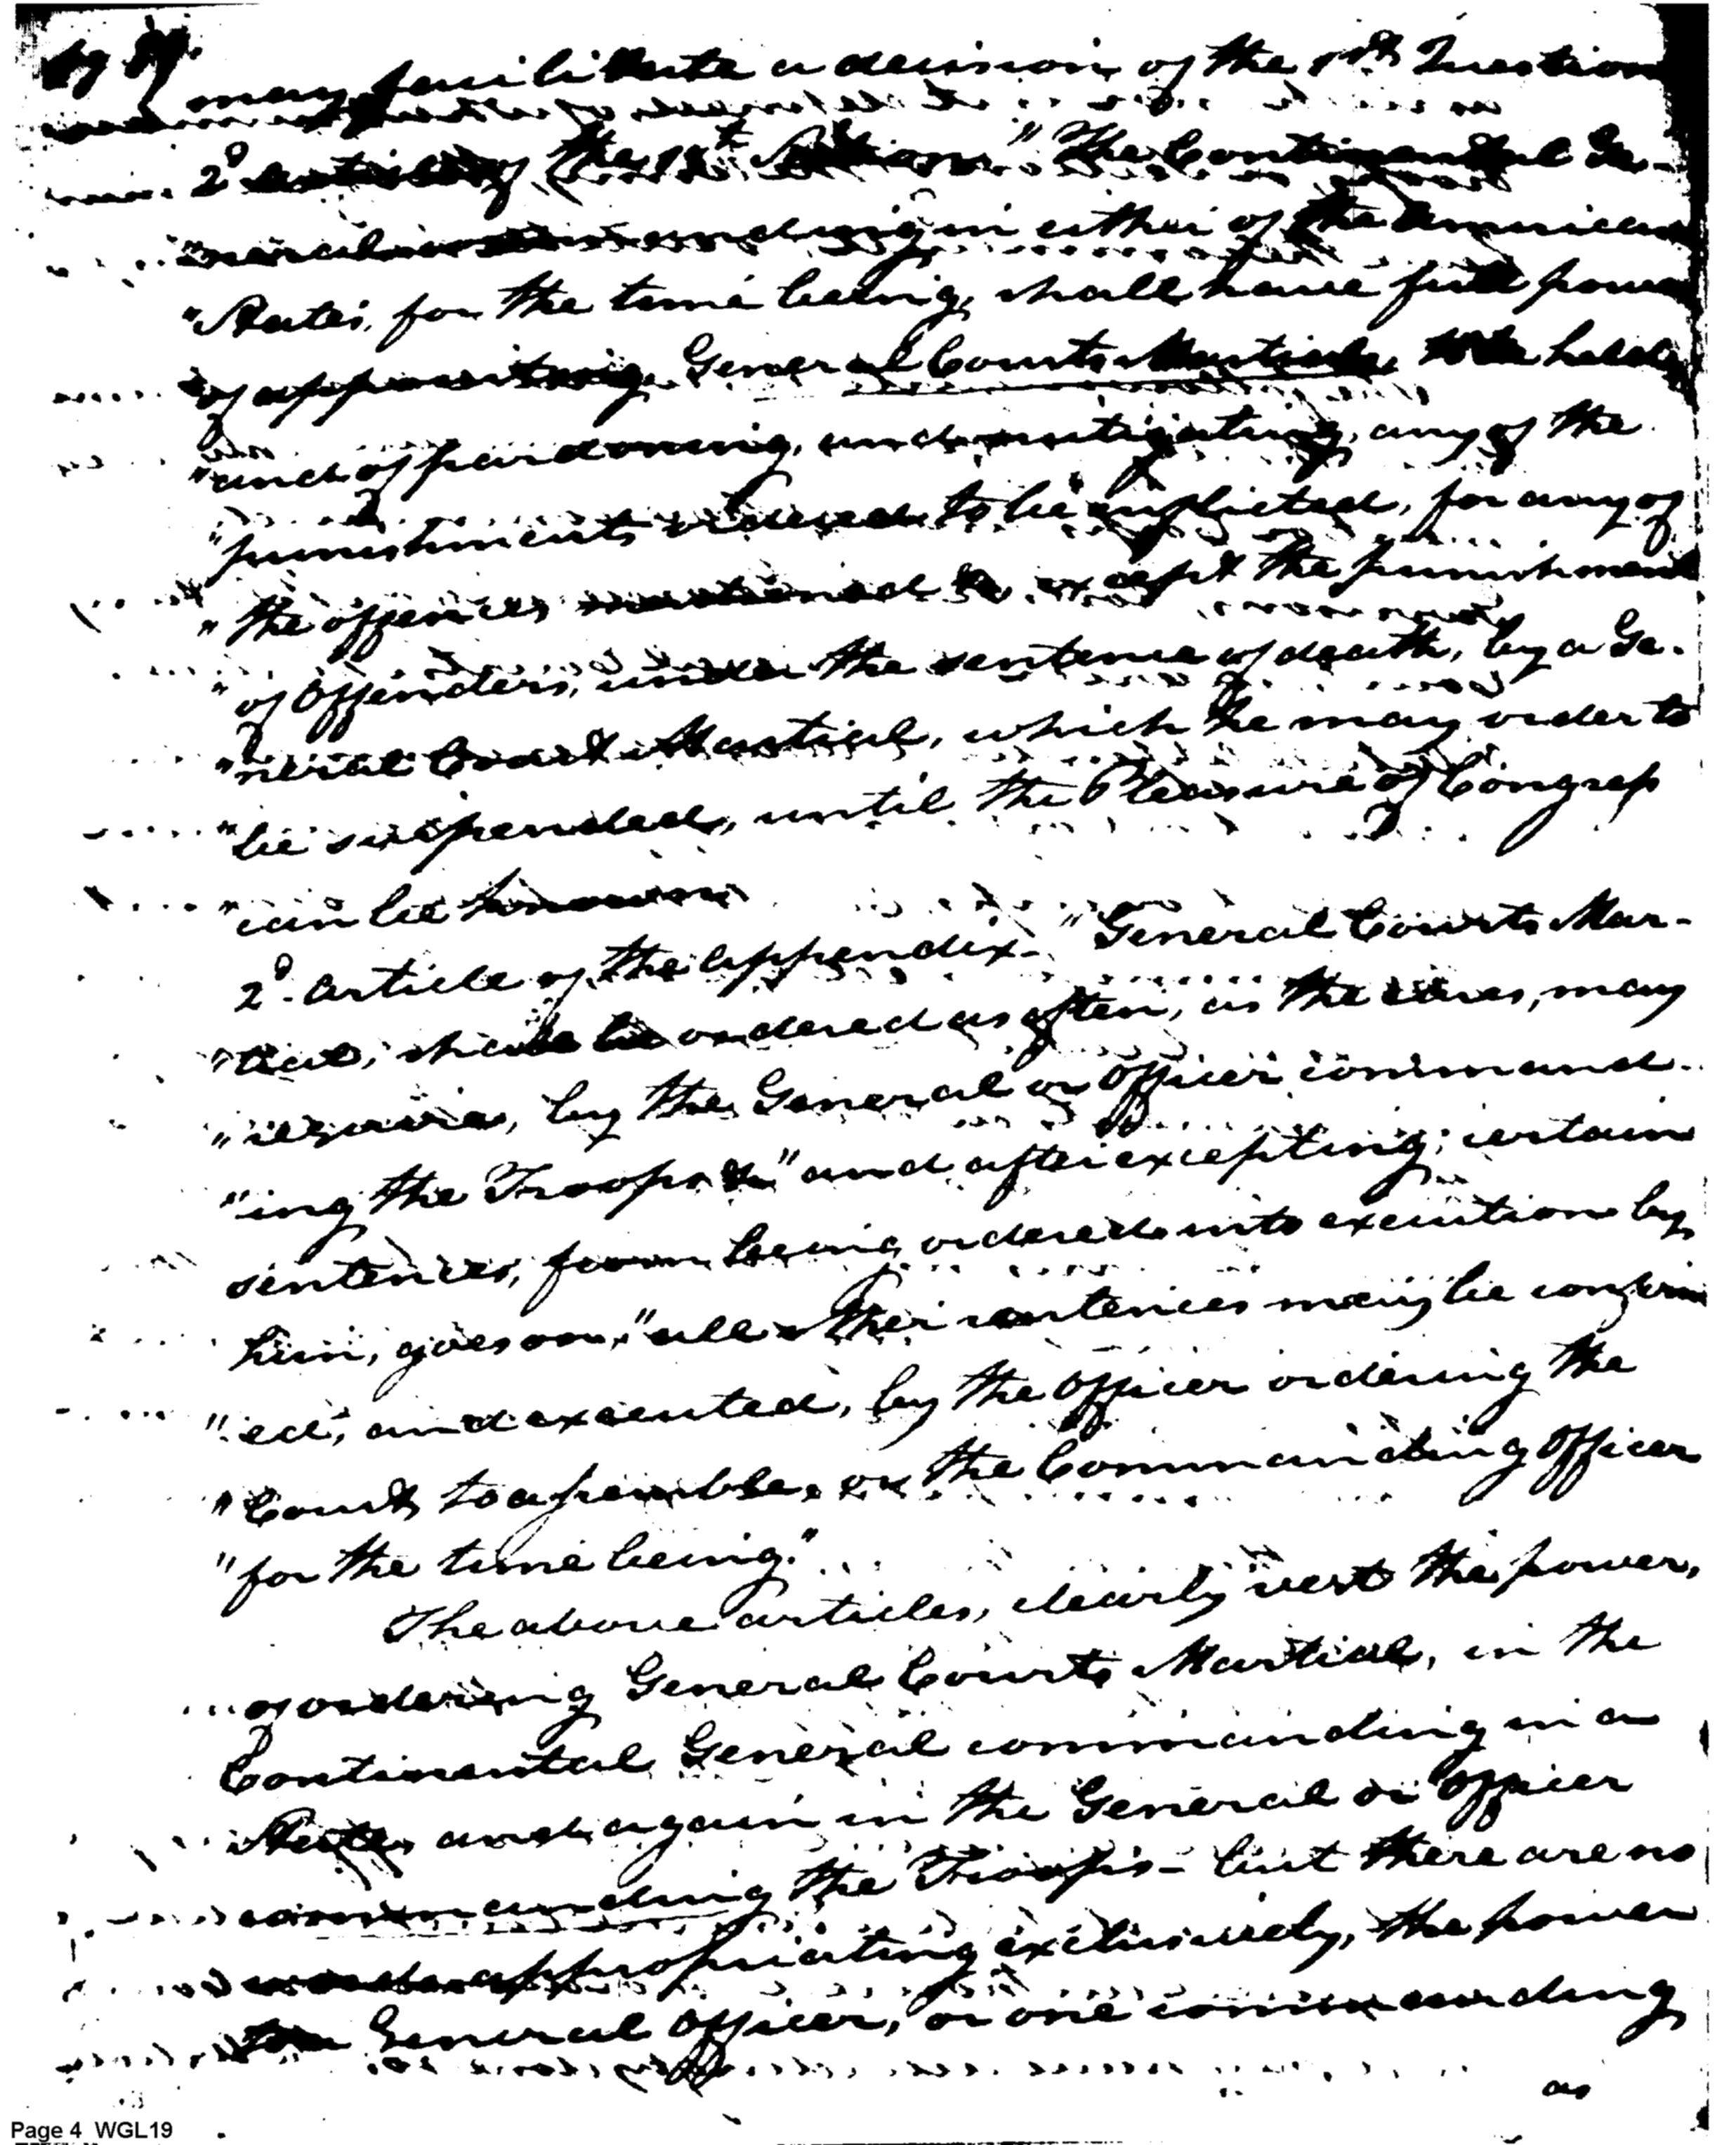 may facilitate a decision of the 1st Question
2d article of the 18t Section. "The Continental Ge-
"neral commanding in either of the American
"States, for the time being, shall have full power
"of appointing General Courts Martial, to be held,
"and of pardoning, and mitigating, any of the
"punishments ordered to be inflicted, for any of
"the offences mentioned &c except the punishment
"of Offenders, under the sentence of death, by a Ge-
"neral Court Martial, which he may order to
"be suspended, until the Pleasure of Congress
"can be known
2d article of the appendix. "General Courts Mar-
"tial, shall be ordered as often, as the cases, may
"require, by the General or Officer command-
"ing the Troops &c" and after excepting, certain
sentences, from being ordered into execution by
him, goes on, "all other sentences may be confirm
"ed, and executed, by the Officer ordering the
"Court to assemble, or the Commanding Officer
"for the time being."
The above articles, clearly vest the power,
of ordering General Courts Martial, in the
Continental General commanding in a
State, and again in the General or Officer
commanding the Troops - but there are no
words appropriating exclusively, the power
to a General Officer, or one commanding
as
Page 4 WGL19